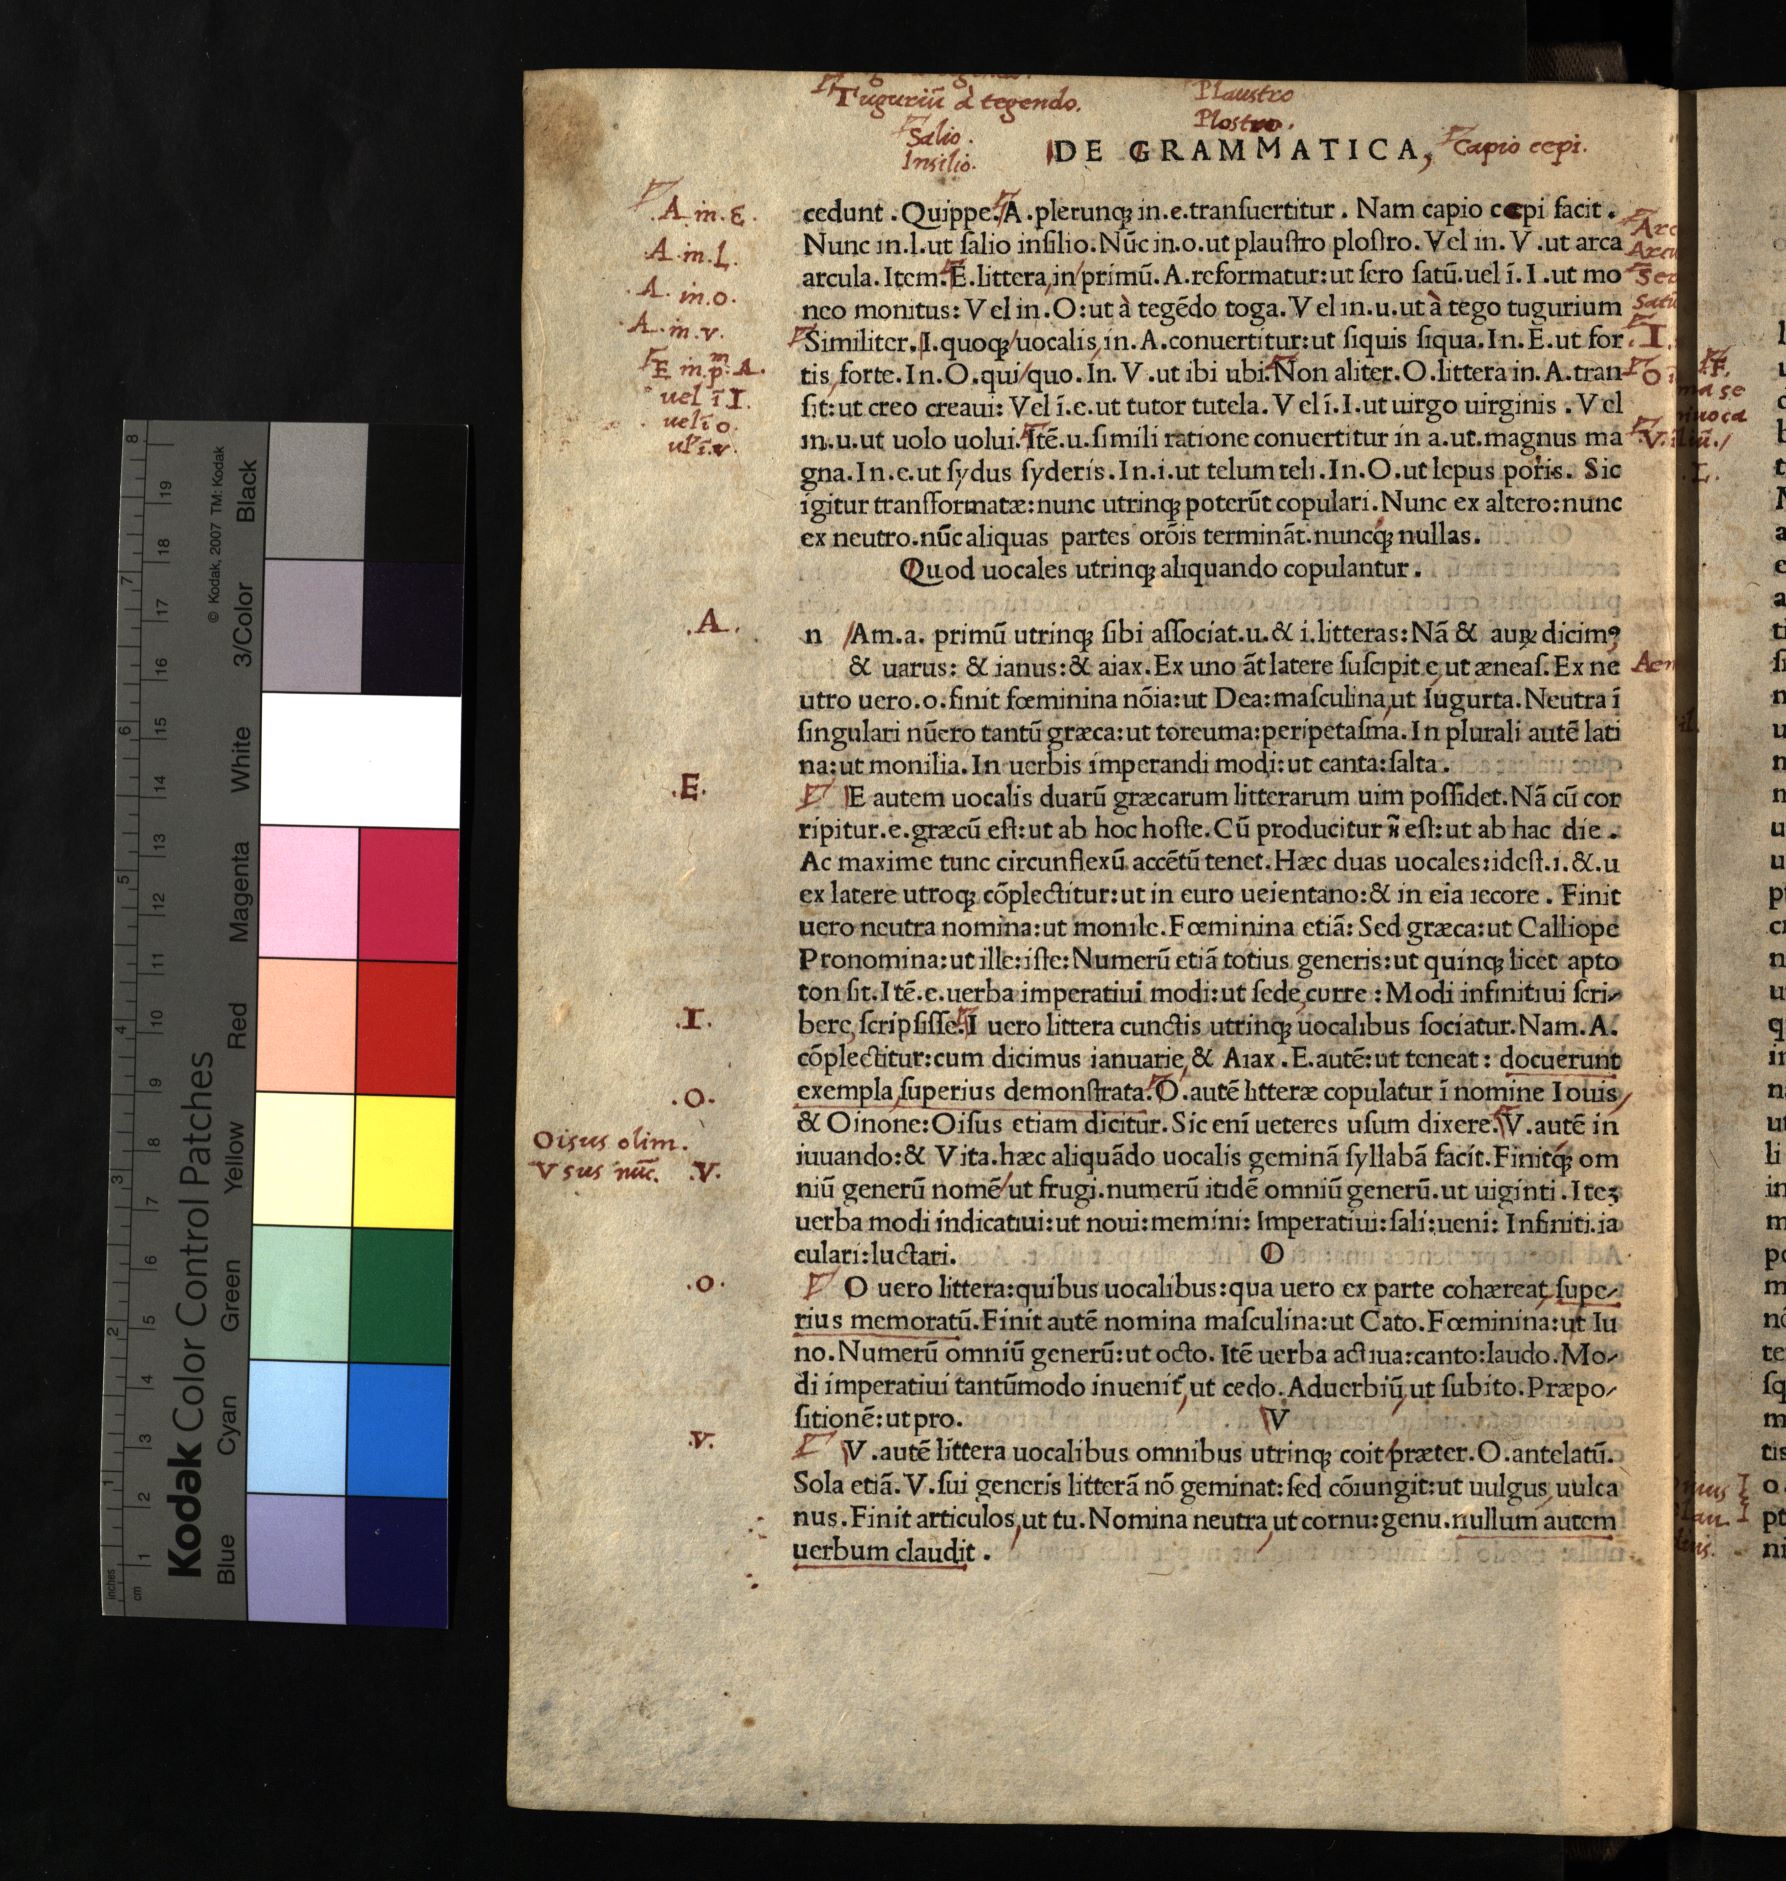 Tuguriũ à tegendo.
Plaustro
Plostro.
Salio.
Insilio.
DE GRAMMATICA,
Capio cepi.
.A. in. E.
.A. in. L.
.A. in. o.
.A. in. v.
E in. p^m. A.
uel ĩ I.
uel ĩ o.
ul ĩ. v.
cedunt . Quippe. A . plerunq; in.e.tranſuertitur . Nam capio cepi facit .
Nunc in.l.ut ſalio inſilio. Nũc in.o.ut plauſtro ploſtro. Vel in. V .ut arca
arcula. Item. E. littera, in primũ. A. reformatur: ut ſero ſatũ. uel ĩ. I. ut mo
neo monitus: Vel in. O: ut à tegẽdo toga. Vel in.u.ut à tego tugurium
Similiter. I. quoq; uocalis, in. A. conuertitur: ut ſiquis ſiqua. In. E. ut for
tis, forte. In. O. qui/quo. In. V . ut ibi ubi. Non aliter. O. littera in. A. tran
ſit: ut creo creaui: Vel ĩ.e.ut tutor tutela. Vel ĩ. I. ut uirgo uirginis . Vel
in.u.ut uolo uolui. Itẽ.u.ſimili ratione conuertitur in a.ut.magnus ma
gna. In.e.ut ſydus ſyderis. In.i.ut telum teli. In. O. ut lepus poris. Sic
igitur tranſformatæ: nunc utrinq; poterũt copulari. Nunc ex altero: nunc
ex neutro. nũc aliquas partes orõis terminãt. nuncq; nullas.
Quod uocales utrinq; aliquando copulantur.
.A.
n Am.a. primũ utrinq; ſibi aſſociat.u.& i.litteras: Nã & auꝝ dicimꝰ
& uarus: & ianus: & aiax. Ex uno ãt latere ſuſcipit e, ut æneaſ. Ex ne
utro uero.o.finit fœminina nõia: ut Dea: maſculina, ut Iugurta. Neutra ĩ
ſingulari nũero tantũ græca: ut toreuma: peripetaſma. In plurali autẽ lati
na: ut monilia. In uerbis imperandi modi: ut canta: ſalta .
.E.
E autem uocalis duarũ græcarum litterarum uim poſſidet. Nã cũ cor
ripitur.e.græcũ eſt: ut ab hoc hoſte. Cũ producitur η̃ eſt: ut ab hac die .
Ac maxime tunc circunflexũ accẽtũ tenet. Hæc duas uocales: ideſt.i.&.u
ex latere utroq; cõplectitur: ut in euro ueientano: & in eia iecore . Finit
uero neutra nomina: ut monile. Fœminina etiã: Sed græca: ut Calliope
Pronomina: ut ille: iſte: Numerũ etiã totius generis: ut quinq; licet apto
ton ſit. Itẽ.e.uerba imperatiui modi: ut ſede, curre : Modi infinitiui ſcri-
.I.
bere, ſcripſiſſe. I uero littera cunctis utrinq; uocalibus ſociatur. Nam. A.
cõplectitur: cum dicimus ianuarie, & Aiax . E. autẽ: ut teneat : docuerunt
.O.
exempla, ſuperius demonſtrata. O. autẽ litteræ copulatur ĩ nomine Iouis,
Oisus olim.
Vsus nũc.
.V.
& Oinone: Oiſus etiam dicitur. Sic eni ueteres uſum dixere. V. autẽ in
iuuando: & Vita. hæc aliquãdo uocalis geminã ſyllabã facit. Finitq; om
niũ generũ nomẽ/ut frugi. numerũ itidẽ omniũ generũ. ut uiginti . Iteꝫ
uerba modi indicatiui: ut noui: memini: Imperatiui: ſali: ueni: Infiniti.ia
culari: luctari.
O
.o.
O uero littera: quibus uocalibus: qua uero ex parte cohæreat, ſupe-
rius memoratũ. Finit autẽ nomina maſculina: ut Cato. Fœminina: ut Iu
no. Numerũ omniũ generũ: ut octo. Itẽ uerba actiua: canto: laudo. Mo-
di imperatiui tantũmodo inuenit̃, ut cedo. Aduerbiũ, ut ſubito. Præpo-
ſitionẽ: ut pro.
V
.v.
V . autẽ littera uocalibus omnibus utrinq; coit/præter. O. antelatũ.
Sola etiã. V. ſui generis litterã nõ geminat: ſed cõiungit: ut uulgus, uulca
nus. Finit articulos, ut tu. Nomina neutra, ut cornu: genu. nullum autem
uerbum claudit .
Kodak Color Control Patches
© Kodak, 2007 TM: Kodak
Blue Cyan Green Yellow Red Magenta White 3/Color Black
inches 1 2 3 4 5 6 7 8
cm 1 2 3 4 5 6 7 8 9 10 11 12 13 14 15 16 17 18 19